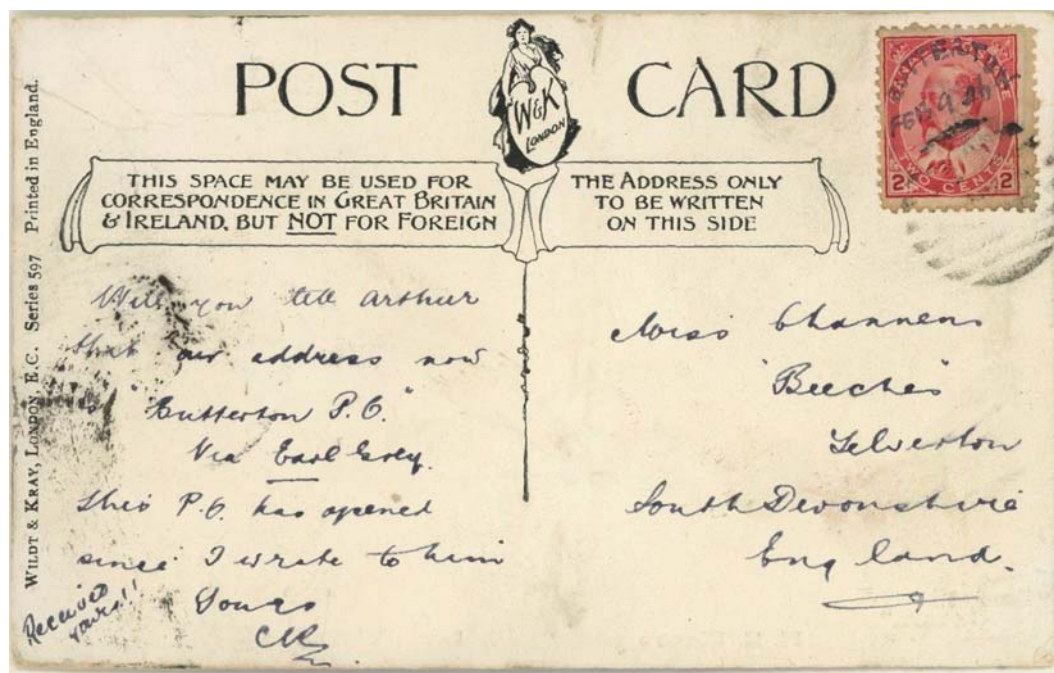 POST CARD
W&K
LONDON
THIS SPACE MAY BE USED FOR
CORRESPONDENCE IN GREAT BRITAIN
& IRELAND, BUT NOT FOR FOREIGN
THE ADDRESS ONLY
TO BE WRITTEN
ON THIS SIDE
WILDT & KRAY, LONDON, E.C. Series 597 Printed in England.
TWO CENTS
2 2
Will you tell Arthur
that our address now
is "Butterton P.O."
Via Earl Grey.
This P.O. has opened
since I wrote to him
Yours
Received
yours!!
Miss
"Beeches"
Yelverton
South Devonshire
England.